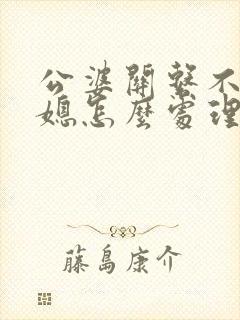 公婆開整不
媳怎麼處理
藤島康介